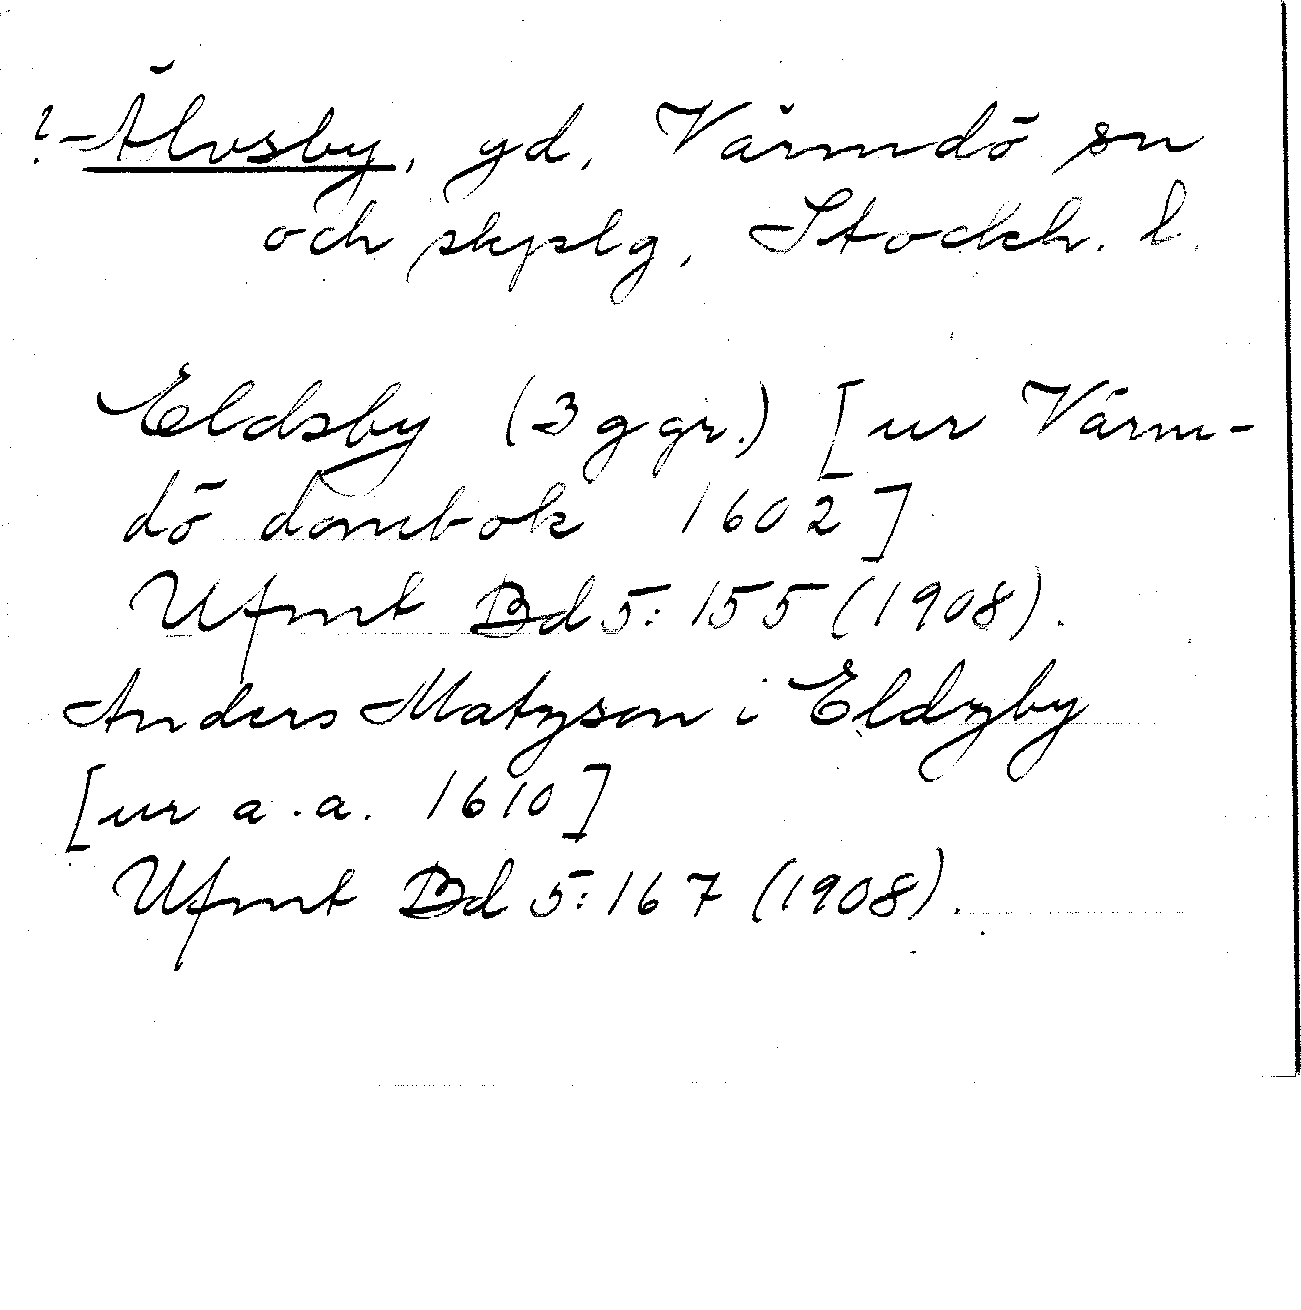 ? Älvsby, gd, Värmdö sn
och skplg, Stockh. l.
Eldsby (3 ggr.) [ur Värm-
dö dombok 1602]
Ufmt Bd 5: 155 (1908).
Anders Matzson i Eldzby
[ur a.a. 1610]
Ufmt Bd 5: 167 (1908).